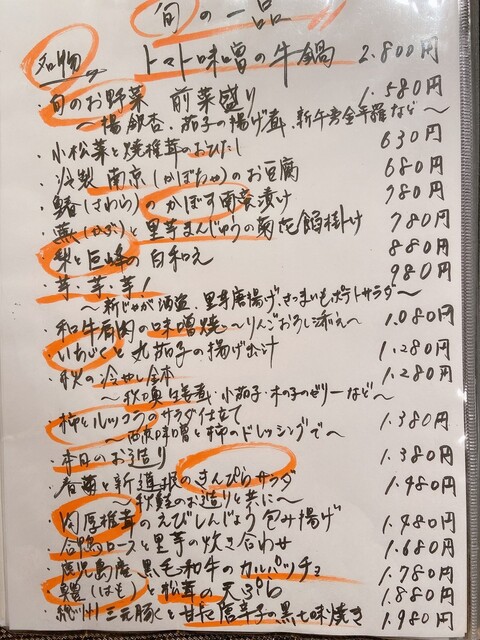 旬の一品
名物 トマト味噌の牛鍋 2.800円
・旬のお野菜 前菜盛り 1.580円
〜揚銀杏、茄子の揚げ煮、新牛蒡金平など〜
・小松菜と焼椎茸のおひたし 630円
・冷製 南京(かぼちゃ)のお豆腐 680円
・鰆(さわら)のかぼす南蛮漬け 780円
・蕪(かぶ)と里芋まんじゅうの菊花餡掛け 780円
・梨と巨峰の白和え 880円
・芋・芋・芋! 980円
〜新じゃが酒盗、里芋唐揚げ、さつまいもポテトサラダ〜
・和牛肩肉の味噌焼〜りんごおろし添え〜 1.080円
・いちじくと丸茄子の揚げ出汁 1.280円
・秋の冷やし鉢 1.280円
小茄子・木の子のゼリーなど〜
・柿とルッコラのサラダ仕立て 1.380円
味噌と柿のドレッシングで〜
・本日のお造り 1.380円
・春菊と新蓮根のきんぴらサラダ 1.480円
〜秋鮭のお造りと共に〜
・肉厚椎茸のえびしんじょう包み揚げ 1.480円
・合鴨ロースと里芋の炊き合わせ 1.680円
・鹿児島産 黒毛和牛のカルパッチョ 1.780円
・鱧(はも)と松茸の天ぷら 1.880円
・総州三元豚と甘長唐辛子の黒七味焼き 1.980円